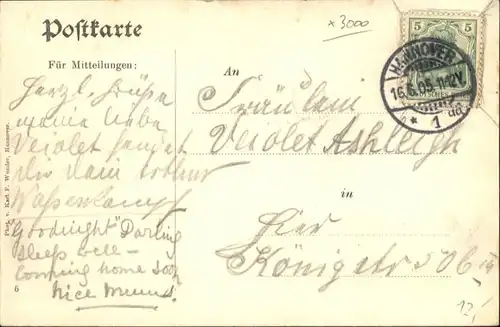 Postkarte
× 3000
5 5
HANNOVER
16.6.05. 11-12V.
* 1 *
Für Mitteilungen:
An
Herzl. Grüße
meine liebe
Violet sendet
Dir Dein
"Goodnight" Darling
sleep well –
coming home soon
Nice
Fräulein
Violet Ashleigh
in
Hier
Königstr 50
12,
Phot. v. Karl F. Wunder, Hannover.
6